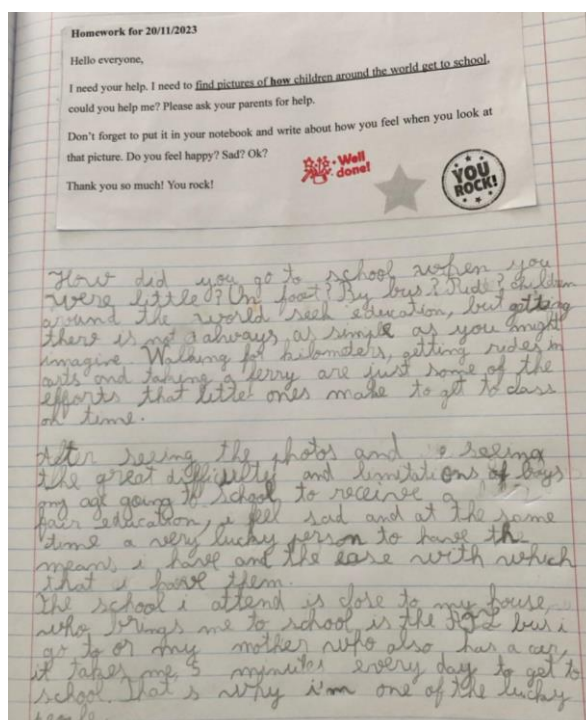 Homework for 20/11/2023
Hello everyone,
I need your help. I need to find pictures of how children around the world get to school,
could you help me? Please ask your parents for help.
Don't forget to put it in your notebook and write about how you feel when you look at
that picture. Do you feel happy? Sad? Ok?
Thank you so much! You rock!
Well done!
YOU ROCK!
How did you go to school when you
were little? On foot? By bus? Ride? children
around the world seek education, but getting
there is not always as simple as you might
imagine Walking for kilometers, getting rides in
and taking a ferry are just some of the
efforts that little ones make to get to class
on time.
After seeing the photos and seeing
the great and limitations of boys
my age going to school, to receive a
fair education, i feel sad and at the same
time a very lucky person to have th
means i have and the ease with which
that i have them.
The school i attend is close to my house,
who brings me to school is the bus i
go to or my mother who also has a car,
it takes me 5 minutes every day to get to
school. That s why i'm one of the lucky
people.